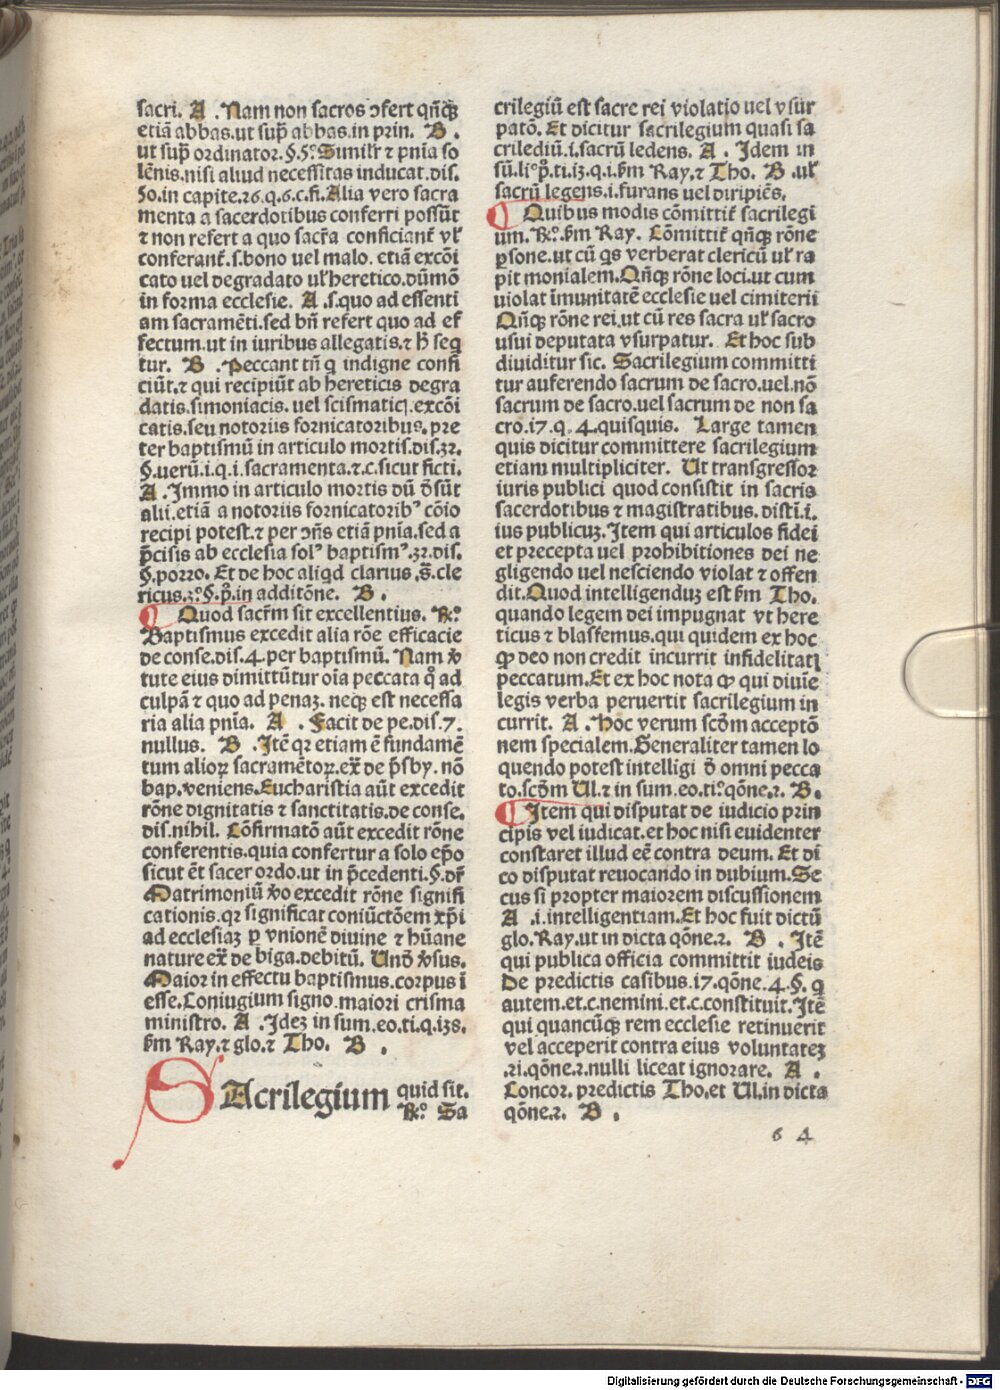 sacri. A .Nam non sacros ɔfert qn̄qꝫ
etiā abbas.ut sup̄ abbas.in prin. B .
ut sup̄ ordinator.§.5.° Similr̄ ⁊ pn̄ia so
lēnis.nisi aliud necessitas inducat.dis.
50.in capite.26.q.6.c.fi.Alia vero sacra
menta a sacerdotibus conferri possūt
⁊ non refert a quo sacr̄a conficiant̄ vl̄
conferant̄.s.bono vel malo. etiā excōi
cato vel degradato ul̄ heretico.dūmō
in forma ecclesie. A .s.quo ad essenti
am sacramēti.sed bn̄ refert quo ad ef
fectum.ut in iuribus allegatis.⁊ h̄ seq
tur. B .Peccant tn̄ q indigne confi
ciūt.⁊ qui recipiūt ab hereticis degra
datis.simoniacis. uel scismatic̨.excōi
catis.seu notoriis fornicatoribus.pre
ter baptismū in articulo mortis.dis.32.
§.uerū.i.q.i.sacramenta.⁊.c.sicut ficti.
A .Immo in articulo mortis dū d̄sūt
alii.etiā a notoriis fornicatorib⁹ cōio
recipi potest.⁊ per ɔn̄s etiā pn̄ia.sed a
p̄cisis ab ecclesia sol⁹ baptism⁹.32.dis.
§.porro. Et de hoc aliqd clarius .s̄.cle
ricus.2.°§.p̄.in additōne. B .
Quod sacrm̄ sit excellentius. ℞.°
Baptismus excedit alia rōe efficacie
de conse.dis.4.per baptismū. Nam v̄
tute eius dimittūtur oīa peccata q̊ ad
culpā ⁊ quo ad penaꝫ. neqꝫ est necessa
ria alia pn̄ia. A . Facit de pe.dis.7.
nullus. B .Itē qꝛ etiam ē fundamē
tum alioꝝ sacramētoꝝ.ex̄ de p̄sby. nō
bap.veniens.Eucharistia aūt excedit
rōne dignitatis ⁊ sanctitatis.de conse.
dis.nihil. Cōfirmatō aūt excedit rōne
conferentis.quia confertur a solo ep̄o
sicut ēt sacer ordo.ut in p̄cedenti.§.dr̄
Matrimoniū v̄o excedit rōne signifi
cationis.qꝛ significat coniūctōem xp̄i
ad ecclesiaꝫ ꝑ vnionē diuine ⁊ hūane
nature ex̄ de biga.debitū. Und̄ v̄sus.
Maior in effectu baptismus.corpus ī
esse.Coniugium signo.maiori crisma
ministro. A .Ideꝫ in sum.eo.ti.q.i3s.
s̄m Ray.⁊ glo.⁊ Tho. B .
SAcrilegium quid sit.
℞.° Sa
crilegiū est sacre rei violatio uel vsur
patō. Et dicitur sacrilegium quasi sa
crilediū.i.sacrū ledens. A . Idem in
sū.li°p̊.ti.i3.q.i.s̄m Ray.⁊ Tho. B .ul̄
sacrū legens.i.furans uel diripiēs.
Quibus modis cōmittit̄ sacrilegi
um. ℞.° s̄m Ray. Cōmittit̄ qn̄qꝫ rōne
ꝑsone.ut cū qs verberat clericū ul̄ ra
pit monialem.Qn̄qꝫ rōne loci.ut cum
violat īmunitatē ecclesie uel cimiterii
Qn̄qꝫ rōne rei.ut cū res sacra ul̄ sacro
usui deputata vsurpatur. Et hoc sub
diuiditur sic. Sacrilegium committi
tur auferendo sacrum de sacro.uel.nō
sacrum de sacro.uel sacrum de non sa
cro.i7.q.4.quisquis. Large tamen
quis dicitur committere sacrilegium
etiam multipliciter. Ut transgressor
iuris publici quod consistit in sacris
sacerdotibus ⁊ magistratibus. disti.i.
ius publicuꝫ. Item qui articulos fidei
et precepta uel prohibitiones dei ne
gligendo uel nesciendo violat ⁊ offen
dit.Quod intelligenduꝫ est s̄m Tho.
quando legem dei impugnat vt here
ticus ⁊ blasfemus.qui quidem ex hoc
ꝙ deo non credit incurrit infidelitatꝭ
peccatum.Et ex hoc nota ꝙ qui diuīe
legis verba peruertit sacrilegium in
currit. A .Hoc verum scd̄m acceptō
nem specialem.Generaliter tamen lo
quendo potest intelligi d̄ omni pecca
to.scd̄m Ul.⁊ in sum.eo.ti.°qōne.2. B .
Item qui disputat de iudicio prin
cipis vel iudicat.et hoc nisi euidenter
constaret illud eē contra deum. Et dī
co disputat reuocando in dubium.Se
cus si propter maiorem discussionem
A .i.intelligentiam.Et hoc fuit dictū
glo.Ray.ut in dicta qōne.2. B . Itē
qui publica officia committit iudeis
De predictis casibus i7.qōne.4.§.q
autem.et.c.nemini.et.c.constituit.Itē
qui quancūqꝫ rem ecclesie retinuerit
vel acceperit contra eius voluntateꝫ
.ri.qōne.2.nulli liceat ignorare. A .
Concor. predictis Tho.et Ul.in dicta
qōne.2. B .
6 4
Digitalisierung gefördert durch die Deutsche Forschungsgemeinschaft - DFG